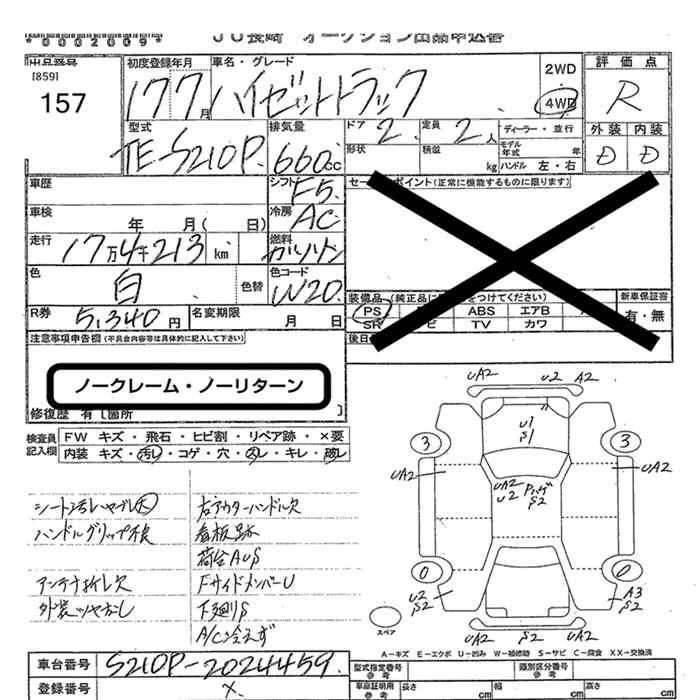 *0002009*
JU長崎 オークション出品申込書
出品番号
[859]
157
初度登録年月
17 7月
車名・グレード
ハイゼットトラック
2WD
4WD
評価点
R
型式
TE-S210P
排気量
660cc
ドア
2
定員
2人
ディーラー・並行
形状
積載
kg
モデル年式
年
ハンドル 左・右
外装 内装
D D
車歴
シフト
F5
セー ポイント(正常に機能するものに限ります)
車検
年 月( 日)
冷房
AC
走行
17万4千213km
燃料
ガソリン
色
白
色替
色コード
W20
装備品(純正品に をつけてください)
新車保証書
PS
ABS
エアB
有・無
SR
ビ
TV
カワ
R券
5,340円
名変期限
月 日
後日
注意事項申告欄(不具合内容等は具体的に記入して下さい)
ノークレーム・ノーリターン
修復歴 有〔箇所 〕
検査員
記入欄
FW キズ・飛石・ヒビ割・リペア跡・×要
内装 キズ・汚レ・コゲ・穴・スレ・キレ・破レ
シート汚レヤブレ大
右アウターハンドル欠
ハンドルグリップ不良
看板跡
荷台AUS
アンテナ折レ欠
FサイドメンバーU
外装ツヤなし
下廻りS
A/C冷えず
UA2
U2
A2
U1
S1
3
3
UA2
UA2
UA2
U2
S2
0
0
U2
S2
A3
S2
スペア
UA2
S2
UA2
A-キズ E-エクボ U-凹み W-補修跡 S-サビ C-腐食 XX-交換済
車台番号
S210P-2024459
型式指定番号
参考
類別区分番号
参考
登録番号
×
車庫証明用
参考
長さ
cm
幅
cm
高さ
cm